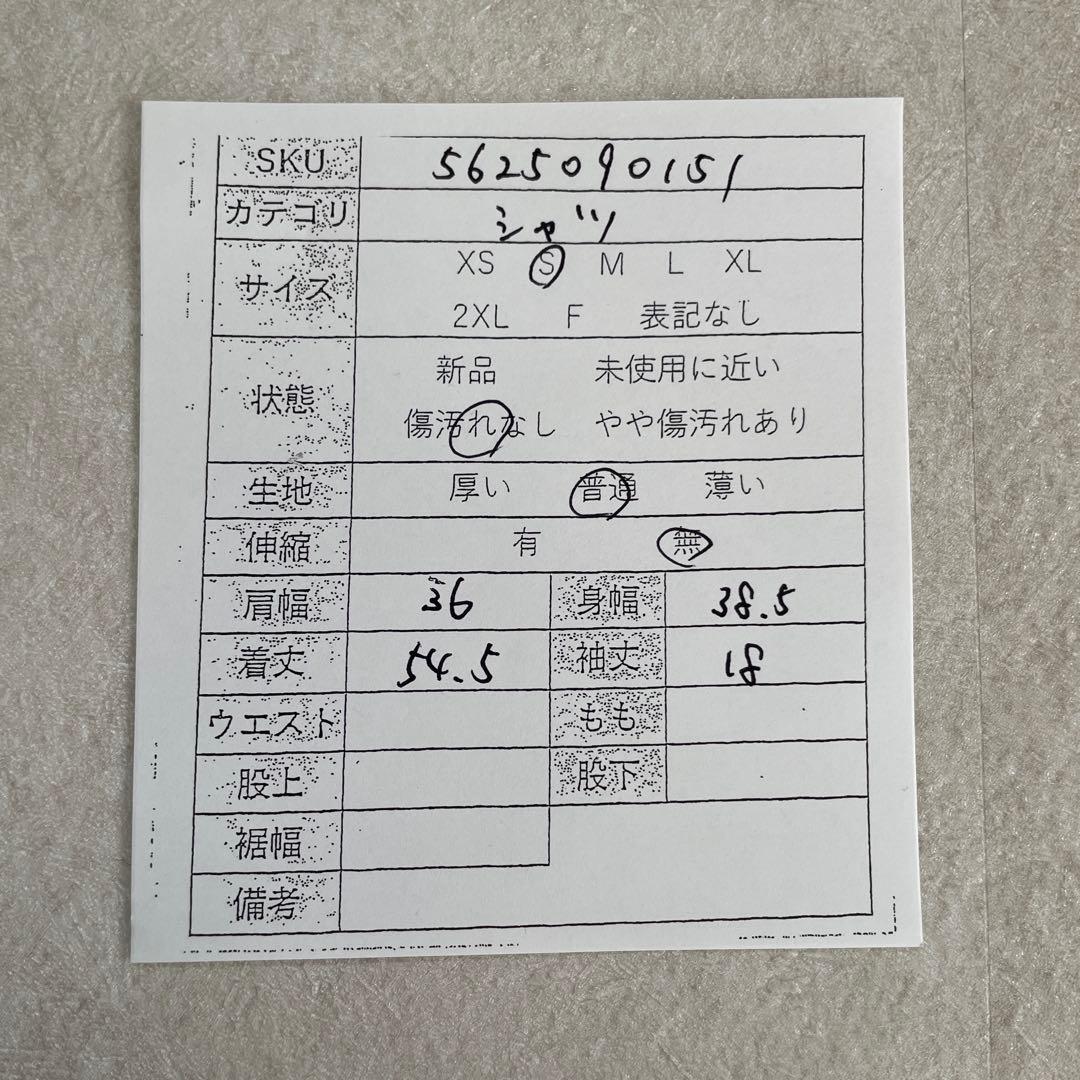 SKU 5625090151
カテゴリ シャツ
サイズ XS S M L XL
2XL F 表記なし
状態 新品 未使用に近い
傷汚れなし やや傷汚れあり
生地 厚い 普通 薄い
伸縮 有 無
肩幅 36 身幅 38.5
着丈 54.5 袖丈 18
ウエスト もも
股上 股下
裾幅
備考